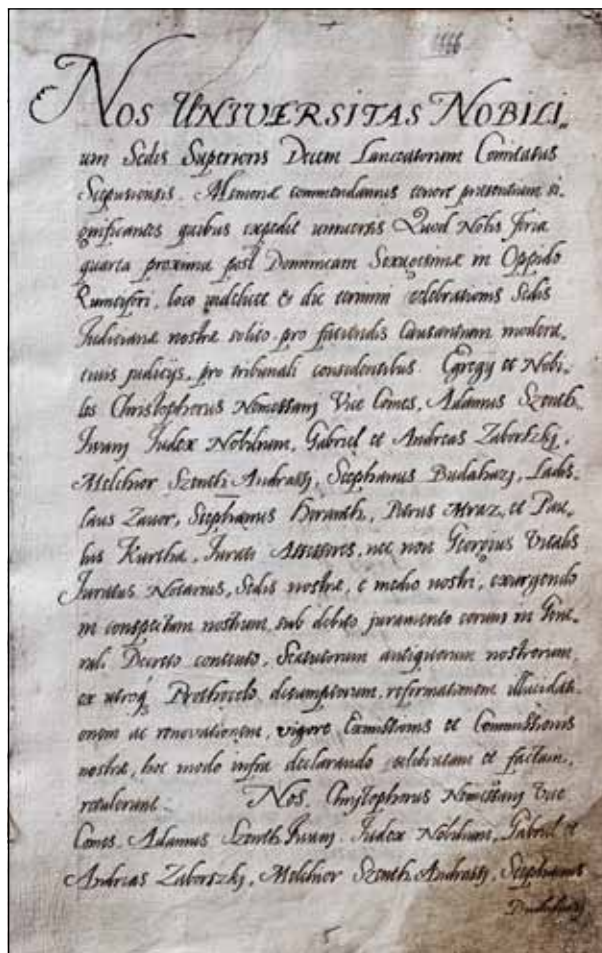 1666
NOS UNIVERSITAS NOBILI„
um Sedis Superioris Decem Lanceatorum Comitatus
Scepusiensis. Memoriæ commendamus tenore presentium si„
gnificantes quibus expedit universis Quod Nobis feria
quarta proxima post Dominicam Sexagesimæ in Oppido
loco videlicet & die termini celebrationis Sedis
Judiciariæ nostræ solito, pro faciendis Causantium modera„
tivis judicijs, pro tribunali consedentibus. Egregij et Nobi„
les Christophorus Nemessanij Vice Comes, Adamus Szenth„
Iwanij Iudex Nobilium, Gabriel et Andreas Zaborszkij,
Melchior Szenth Andrassij, Stephanus Budahazij, Ladis„
laus Stephanus Horvath, Petrus Mraz, et Pau„
lus Kurtha, Iurati Assessores, nec non Georgius Vitalis
Juratus Notarius, Sedis nostræ, e medio nostri, exurgendo
in conspectum nostrum, sub debito juramento eorum in Gene„
rali Decreto contento, Statutorum antiquorum nostrorum,
ex utroq3 Prothocolo desumptorum, reformationem illucidati„
onem ac renovationem, vigore Exmissionis et Commissionis
nostræ, hoc modo infra declarando celebratam et factam,
retulerunt. Nos, Christophorus Nemessanij Vice
Comes, Adamus Szenth Iwanij Iudex Nobilium, Gabriel et
Andreas Zaborszkij, Melchior Szenth Andrassij, Stephanus
Budahazij